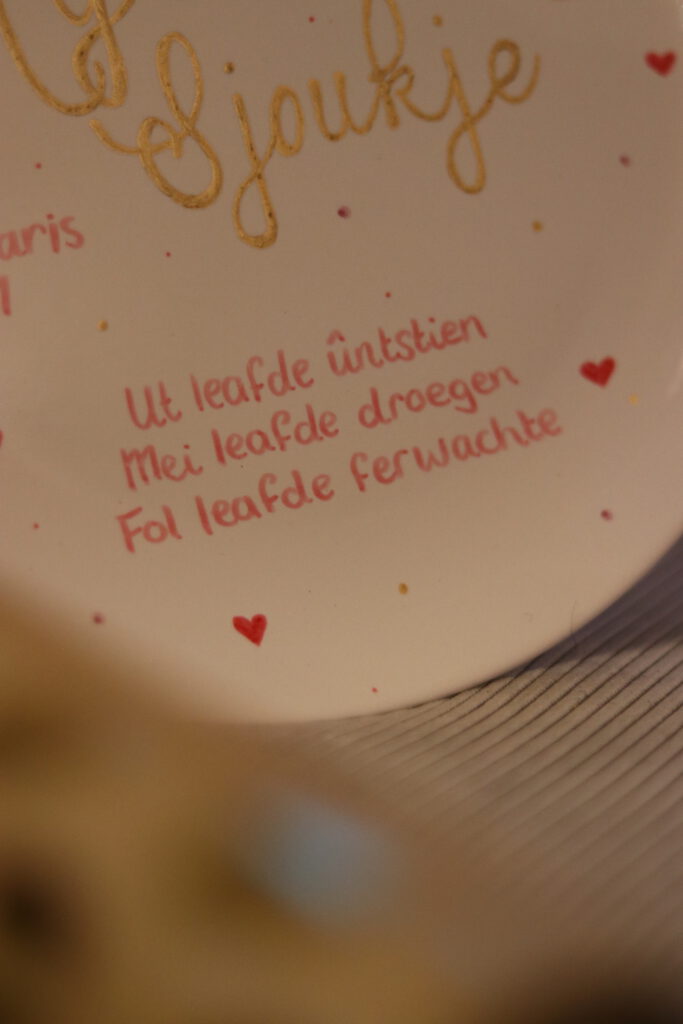 Sjoukje
aris
Ut leafde ûntstien
Mei leafde droegen
Fol leafde ferwachte